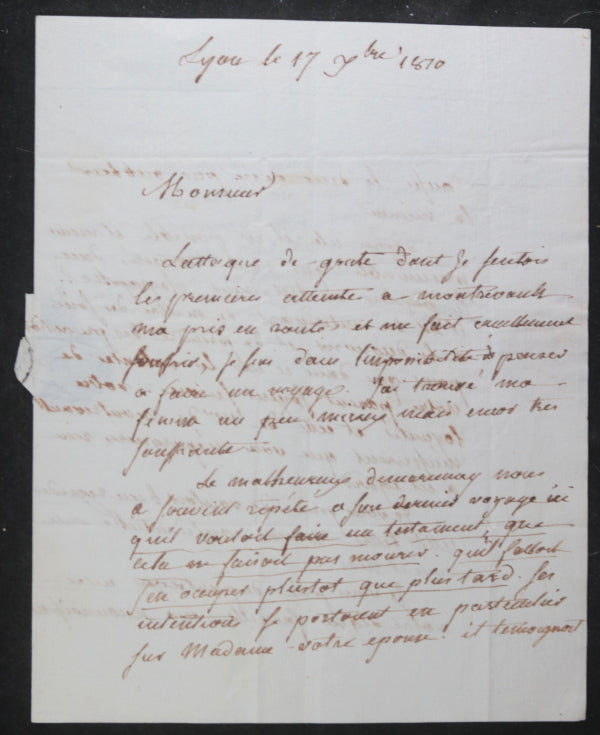 Lyon le 17 xbre 1810
Monsieur
L'attaque de goute dont Je sentois
les premieres atteintes a montrevault
ma pris en route et me fait cruellement
souffrir, je suis dans l'impossibilité de penser
a faire un voyage. J'ai trouvé ma
femme un peu mieux mais encor tres
souffrante
Le malheureux nous
a souvent répété a son dernier voyage ici
qu'il vouloit faire un testament, que
cela ne faisoit pas mourir. qu'il falloit
s'en occuper plustot que plus tard. Ses
intentions se portoient en particulier
sur Madame votre epouse. il temoignoit